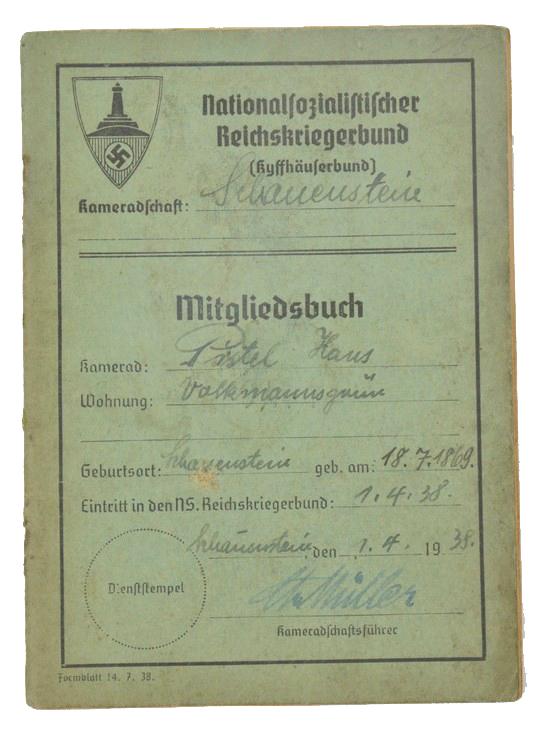 Nationalsozialistischer
Reichskriegerbund
(Kyffhäuserbund)
Kameradschaft: Schauenstein
Mitgliedsbuch
Kamerad: Pistel Hans
Wohnung: Volkmannsgrün
Geburtsort: Schauenstein geb. am: 18.7.1869.
Eintritt in den NS. Reichskriegerbund: 1.4.38.
Schauenstein, den 1.4. 1938.
Dienststempel
Müller
Kameradschaftsführer
Formblatt 14. 7. 38.